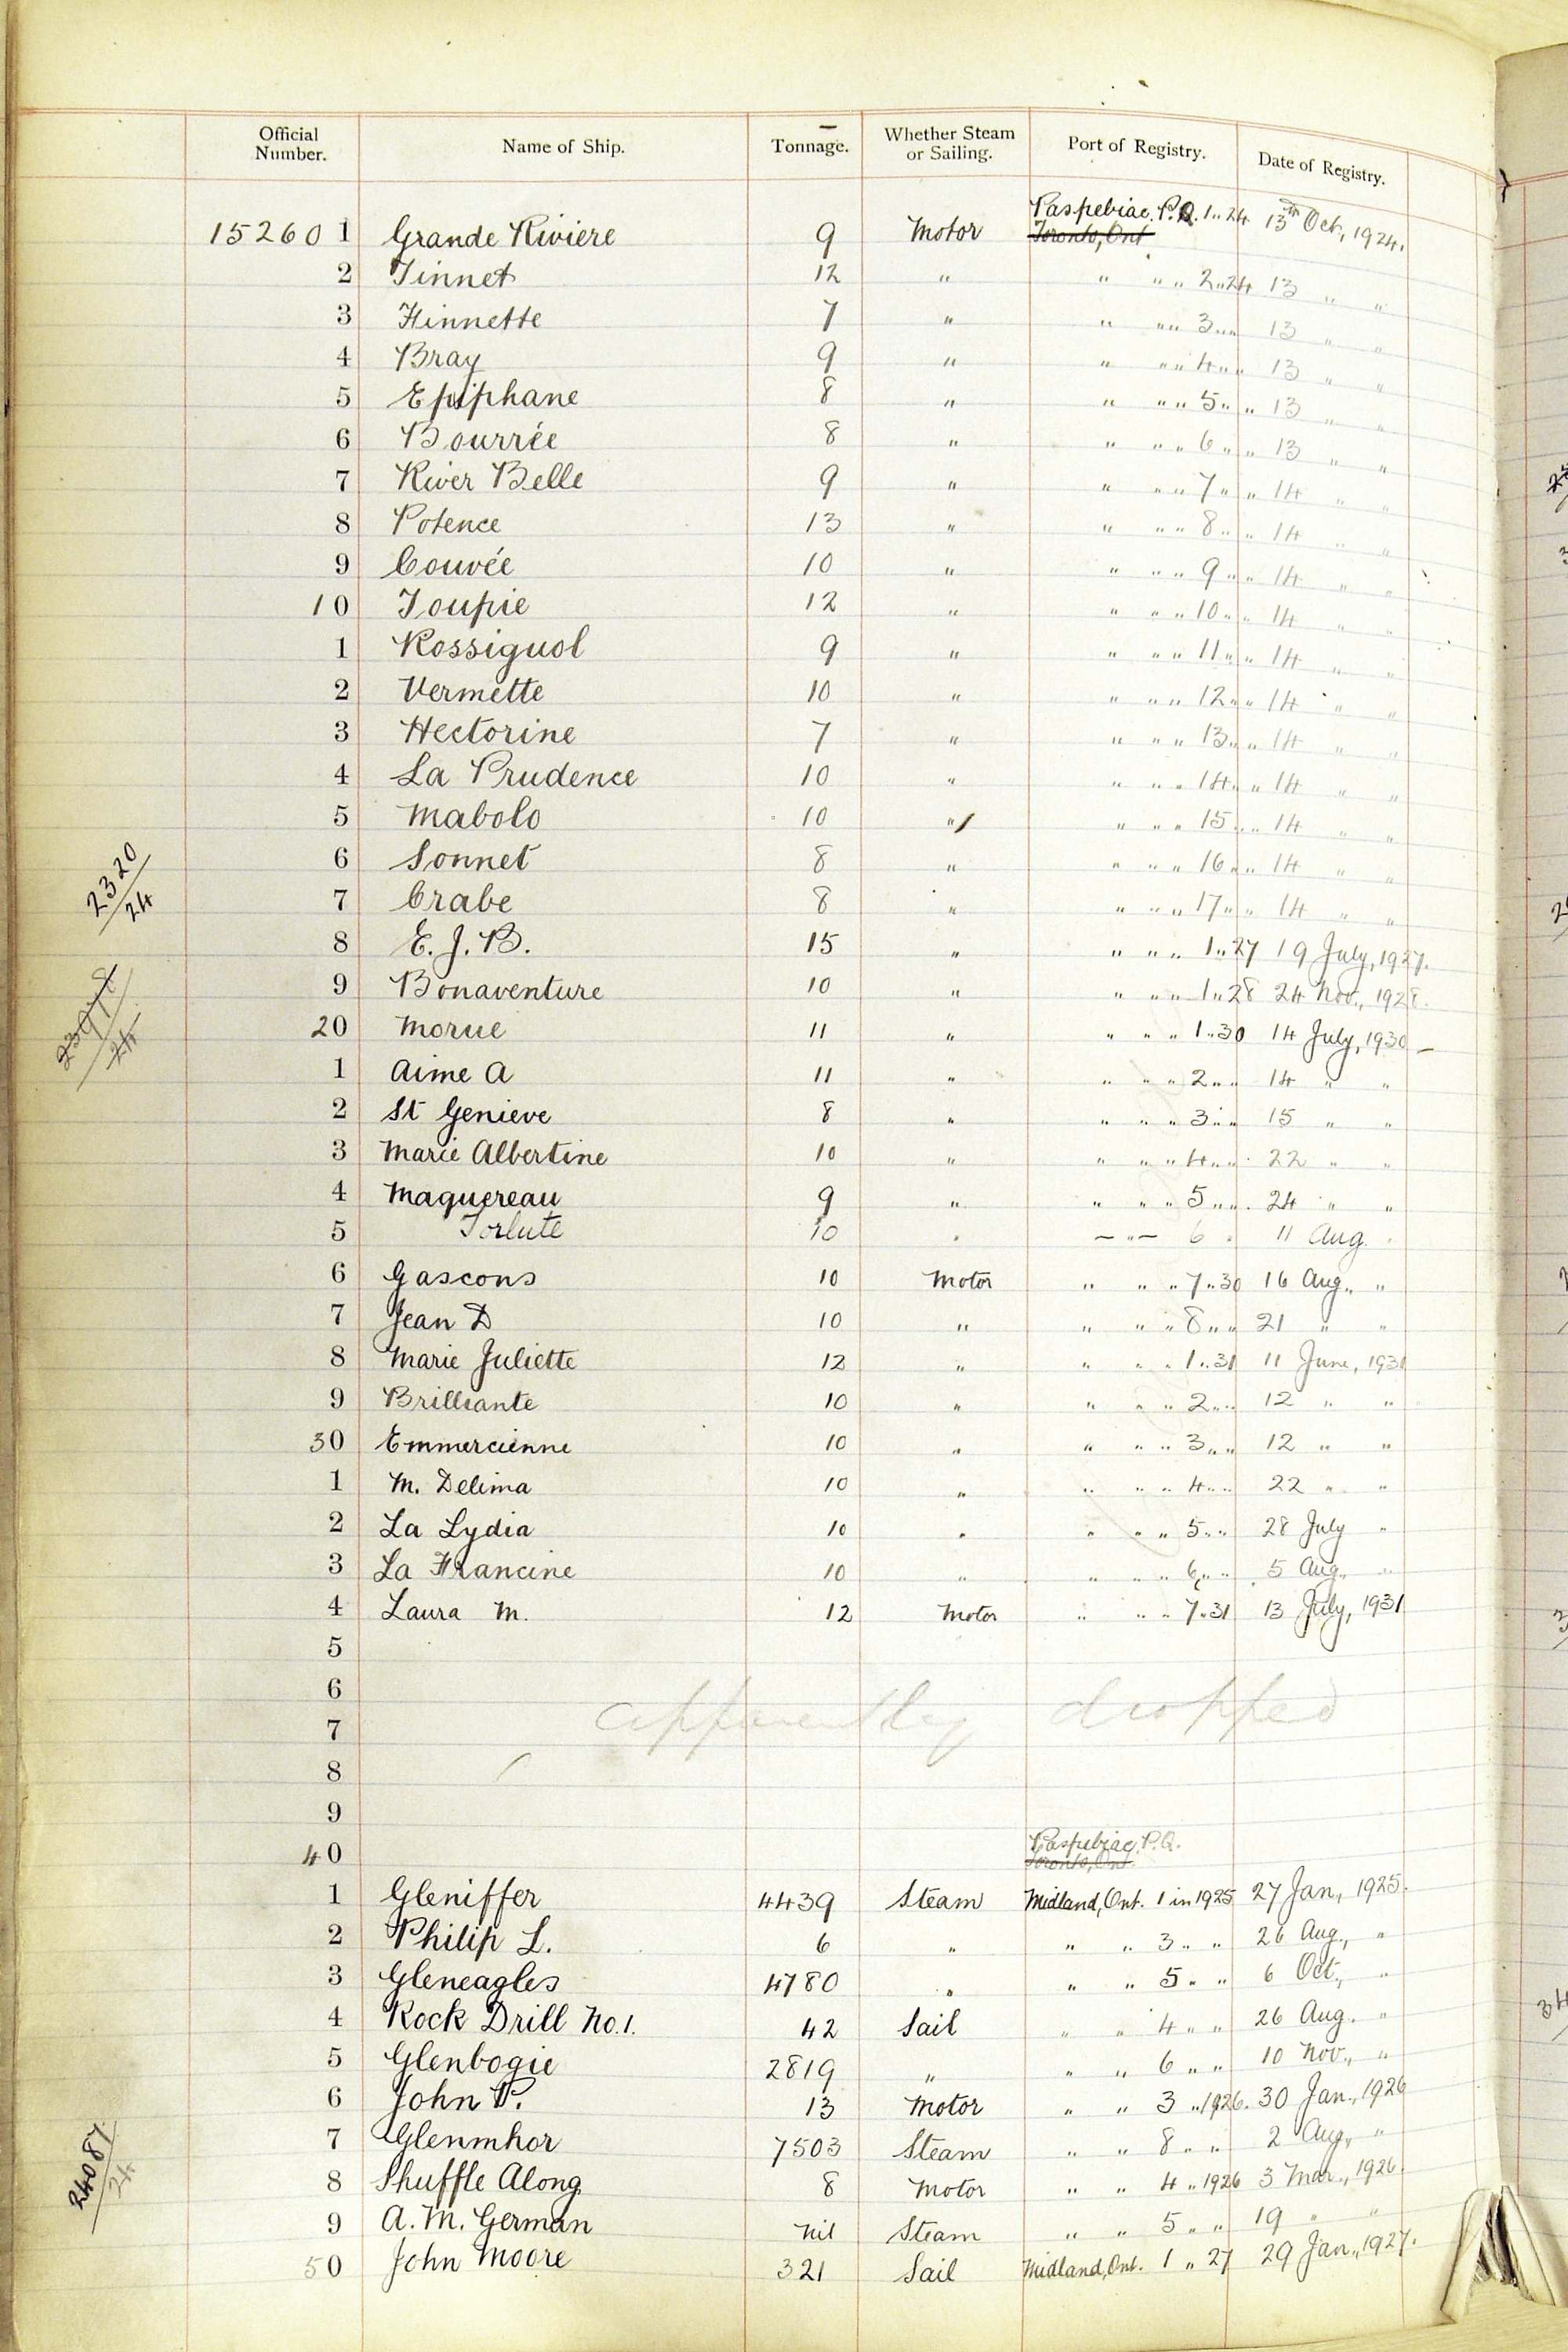 Official Number. Name of Ship. Tonnage. Whether Steam or Sailing. Port of Registry. Date of Registry.
152601 Grande Riviere 9 Motor Paspebiac. P.Q. 1 " 24 13th Oct., 1924.
Toronto, Ont
2 Tinnet 12 " " " " 2 " 24 13 " "
3 Finnette 7 " " " " 3 " " 13 " "
4 Bray 9 " " " " 4 " " 13 " "
5 Epiphane 8 " " " " 5 " " 13 " "
6 Bourrée 8 " " " " 6 " " 13 " "
7 River Belle 9 " " " " 7 " " 14 " "
8 Potence 13 " " " " 8 " " 14 " "
9 Couvée 10 " " " " 9 " " 14 " "
10 Toupie 12 " " " " 10 " " 14 " "
1 Rossignol 9 " " " " 11 " " 14 " "
2 Vermette 10 " " " " 12 " " 14 " "
3 Hectorine 7 " " " " 13 " " 14 " "
4 La Prudence 10 " " " " 14 " " 14 " "
5 Mabolo 10 " " " " 15 " " 14 " "
2320/24 6 Sonnet 8 " " " " 16 " " 14 " "
7 Crabe 8 " " " " 17 " " 14 " "
8 E. J. B. 15 " " " " 1 " 27 19 July, 1927.
9 Bonaventure 10 " " " " 1 " 28 24 Nov., 1928.
20 Morue 11 " " " " 1 " 30 14 July, 1930
1 Aime A 11 " " " " 2 " " 14 " "
2 St Genieve 8 " " " " 3 " " 15 " "
3 Marie Albertine 10 " " " " 4 " " 22 " "
4 Maquereau 9 " " " " 5 " " 24 " "
5 Torlute 10 " — " — 6 " 11 Aug. "
6 Gascons 10 Motor " " " 7 " 30 16 Aug., "
7 Jean D 10 " " " " 8 " " 21 " "
8 Marie Juliette 12 " " " " 1 " 31 11 June, 1931
9 Brilliante 10 " " " " 2 " " 12 " "
30 Emmercienne 10 " " " " 3 " " 12 " "
1 M. Delima 10 " " " " 4 " " 22 " "
2 La Lydia 10 " " " " 5 " " 28 July "
3 La Francine 10 " " " " 6 " " 5 Aug., "
4 Laura M. 12 Motor " " " 7 " 31 13 July, 1931
5
6
7 apparently dropped
8
9
40 Paspebiac, P.Q.
Toronto, Ont.
1 Gleniffer 4439 Steam Midland, Ont. 1 in 1925 27 Jan, 1925.
2 Philip L. 6 " " " 3 " " 26 Aug., "
3 Gleneagles 4780 " " " 5 " " 6 Oct., "
4 Rock Drill No. 1. 42 Sail " " 4 " " 26 Aug. "
5 Glenbogie 2819 " " " 6 " " 10 Nov., "
6 John P. 13 Motor " " 3 " 1926. 30 Jan., 1926
7 Glenmhor 7503 Steam " " 8 " " 2 Aug, "
24087/24 8 Shuffle Along 8 Motor " " 4 " 1926 3 Mar., 1926.
9 A. M. German Nil Steam " " 5 " " 19 " "
50 John Moore 321 Sail Midland, Ont. 1 " 27 29 Jan., 1927.